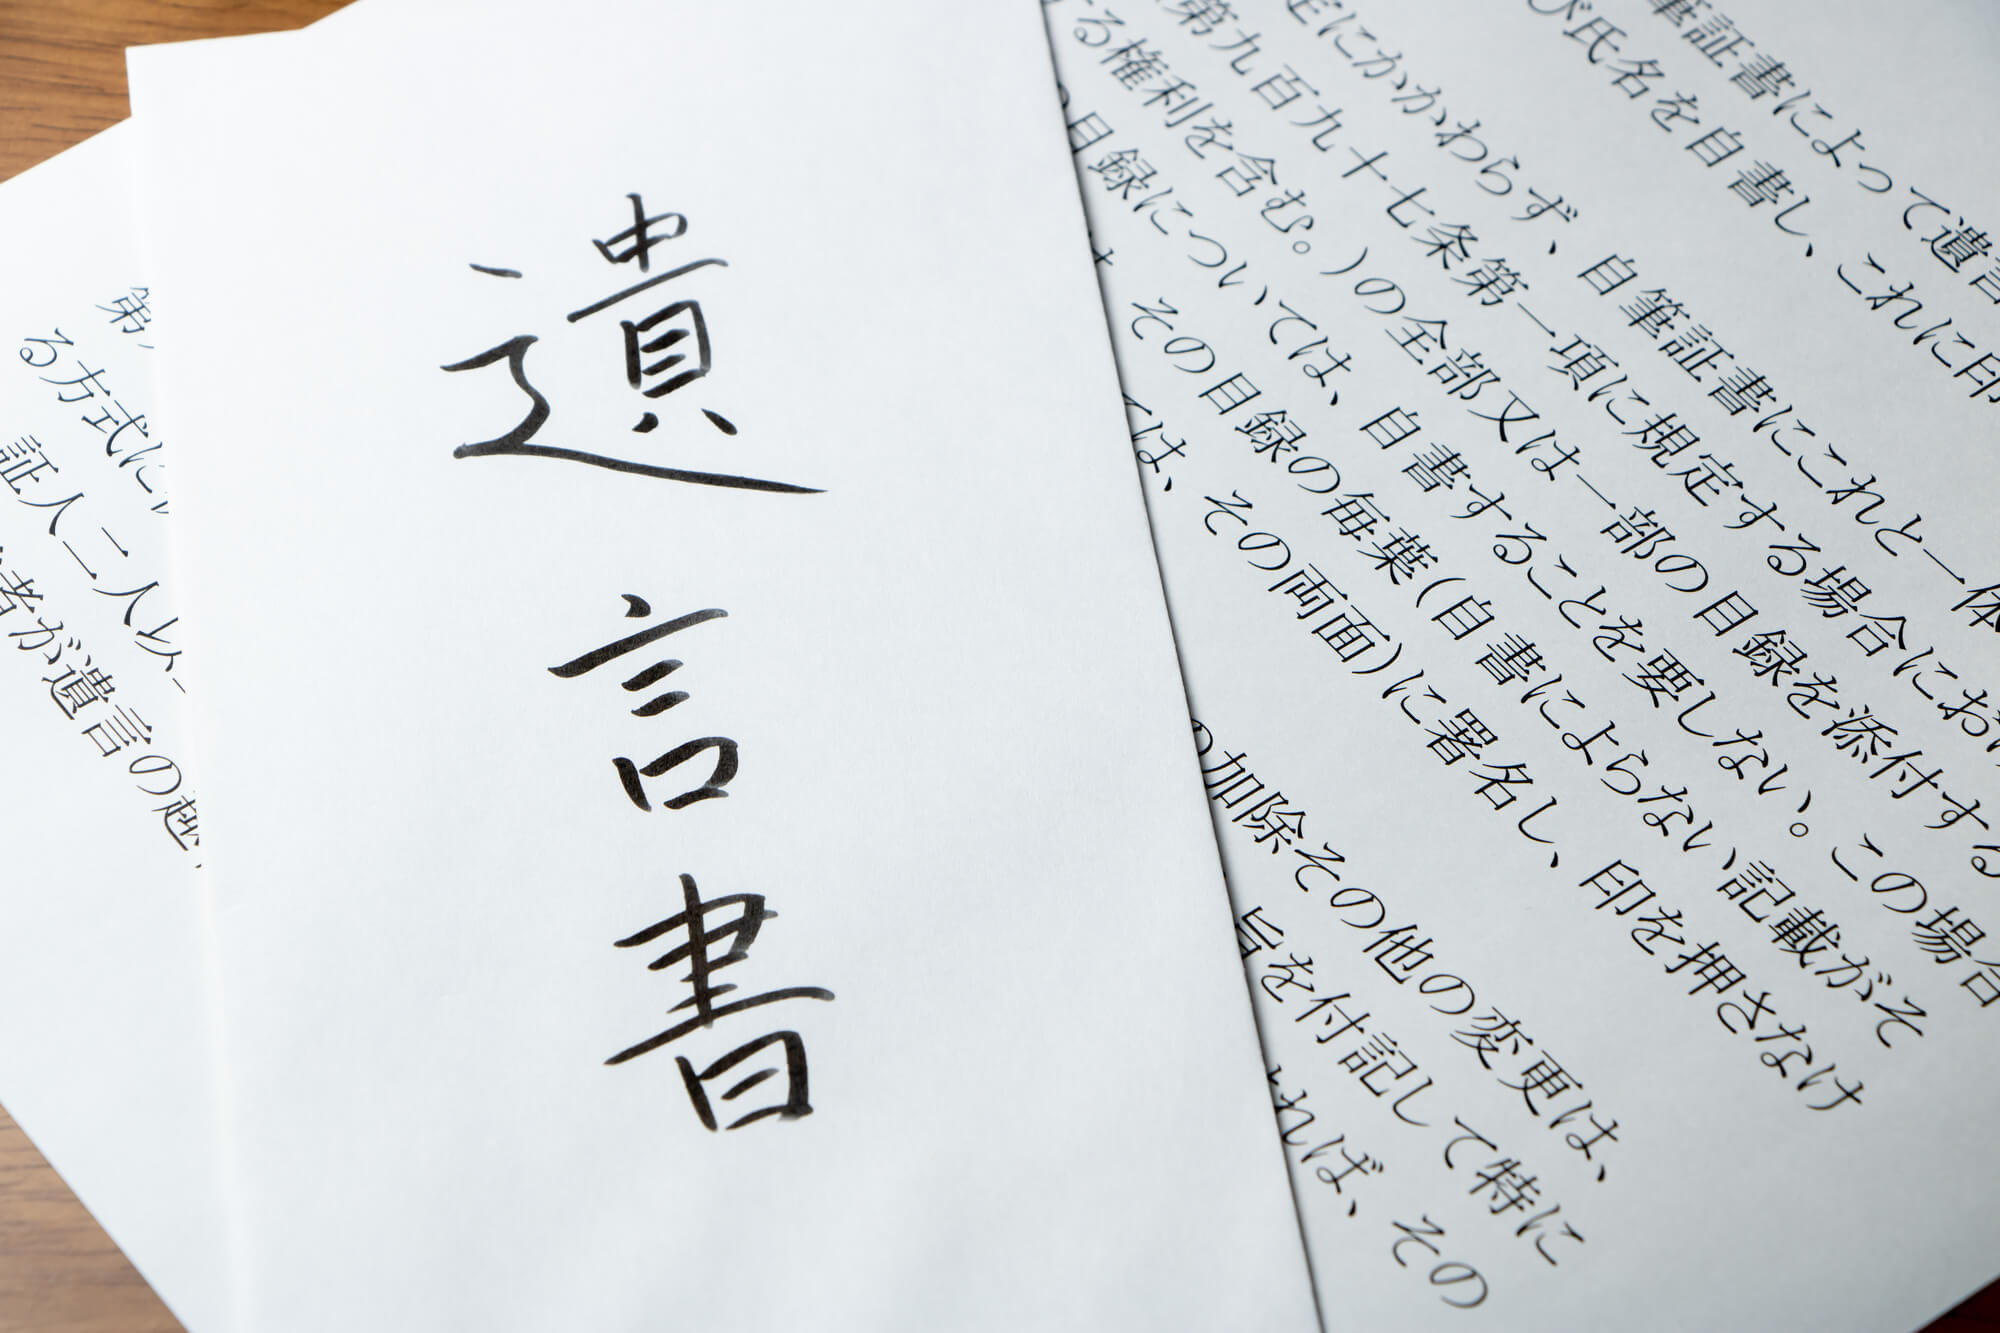 筆証書によって遺言
び氏名を自書し、これに印
定にかかわらず、自筆証書にこれと一体
第九百九十七条第一項に規定する場合にお
する権利を含む。）の全部又は一部の目録を添付する
目録については、自書することを要しない。この場合
その目録の毎葉（自書によらない記載がそ
ては、その両面）に署名し、印を押さなけ
の加除その他の変更は、
旨を付記して特に
れば、その
遺言書
第
る方式に
証人二人以
者が遺言の趣